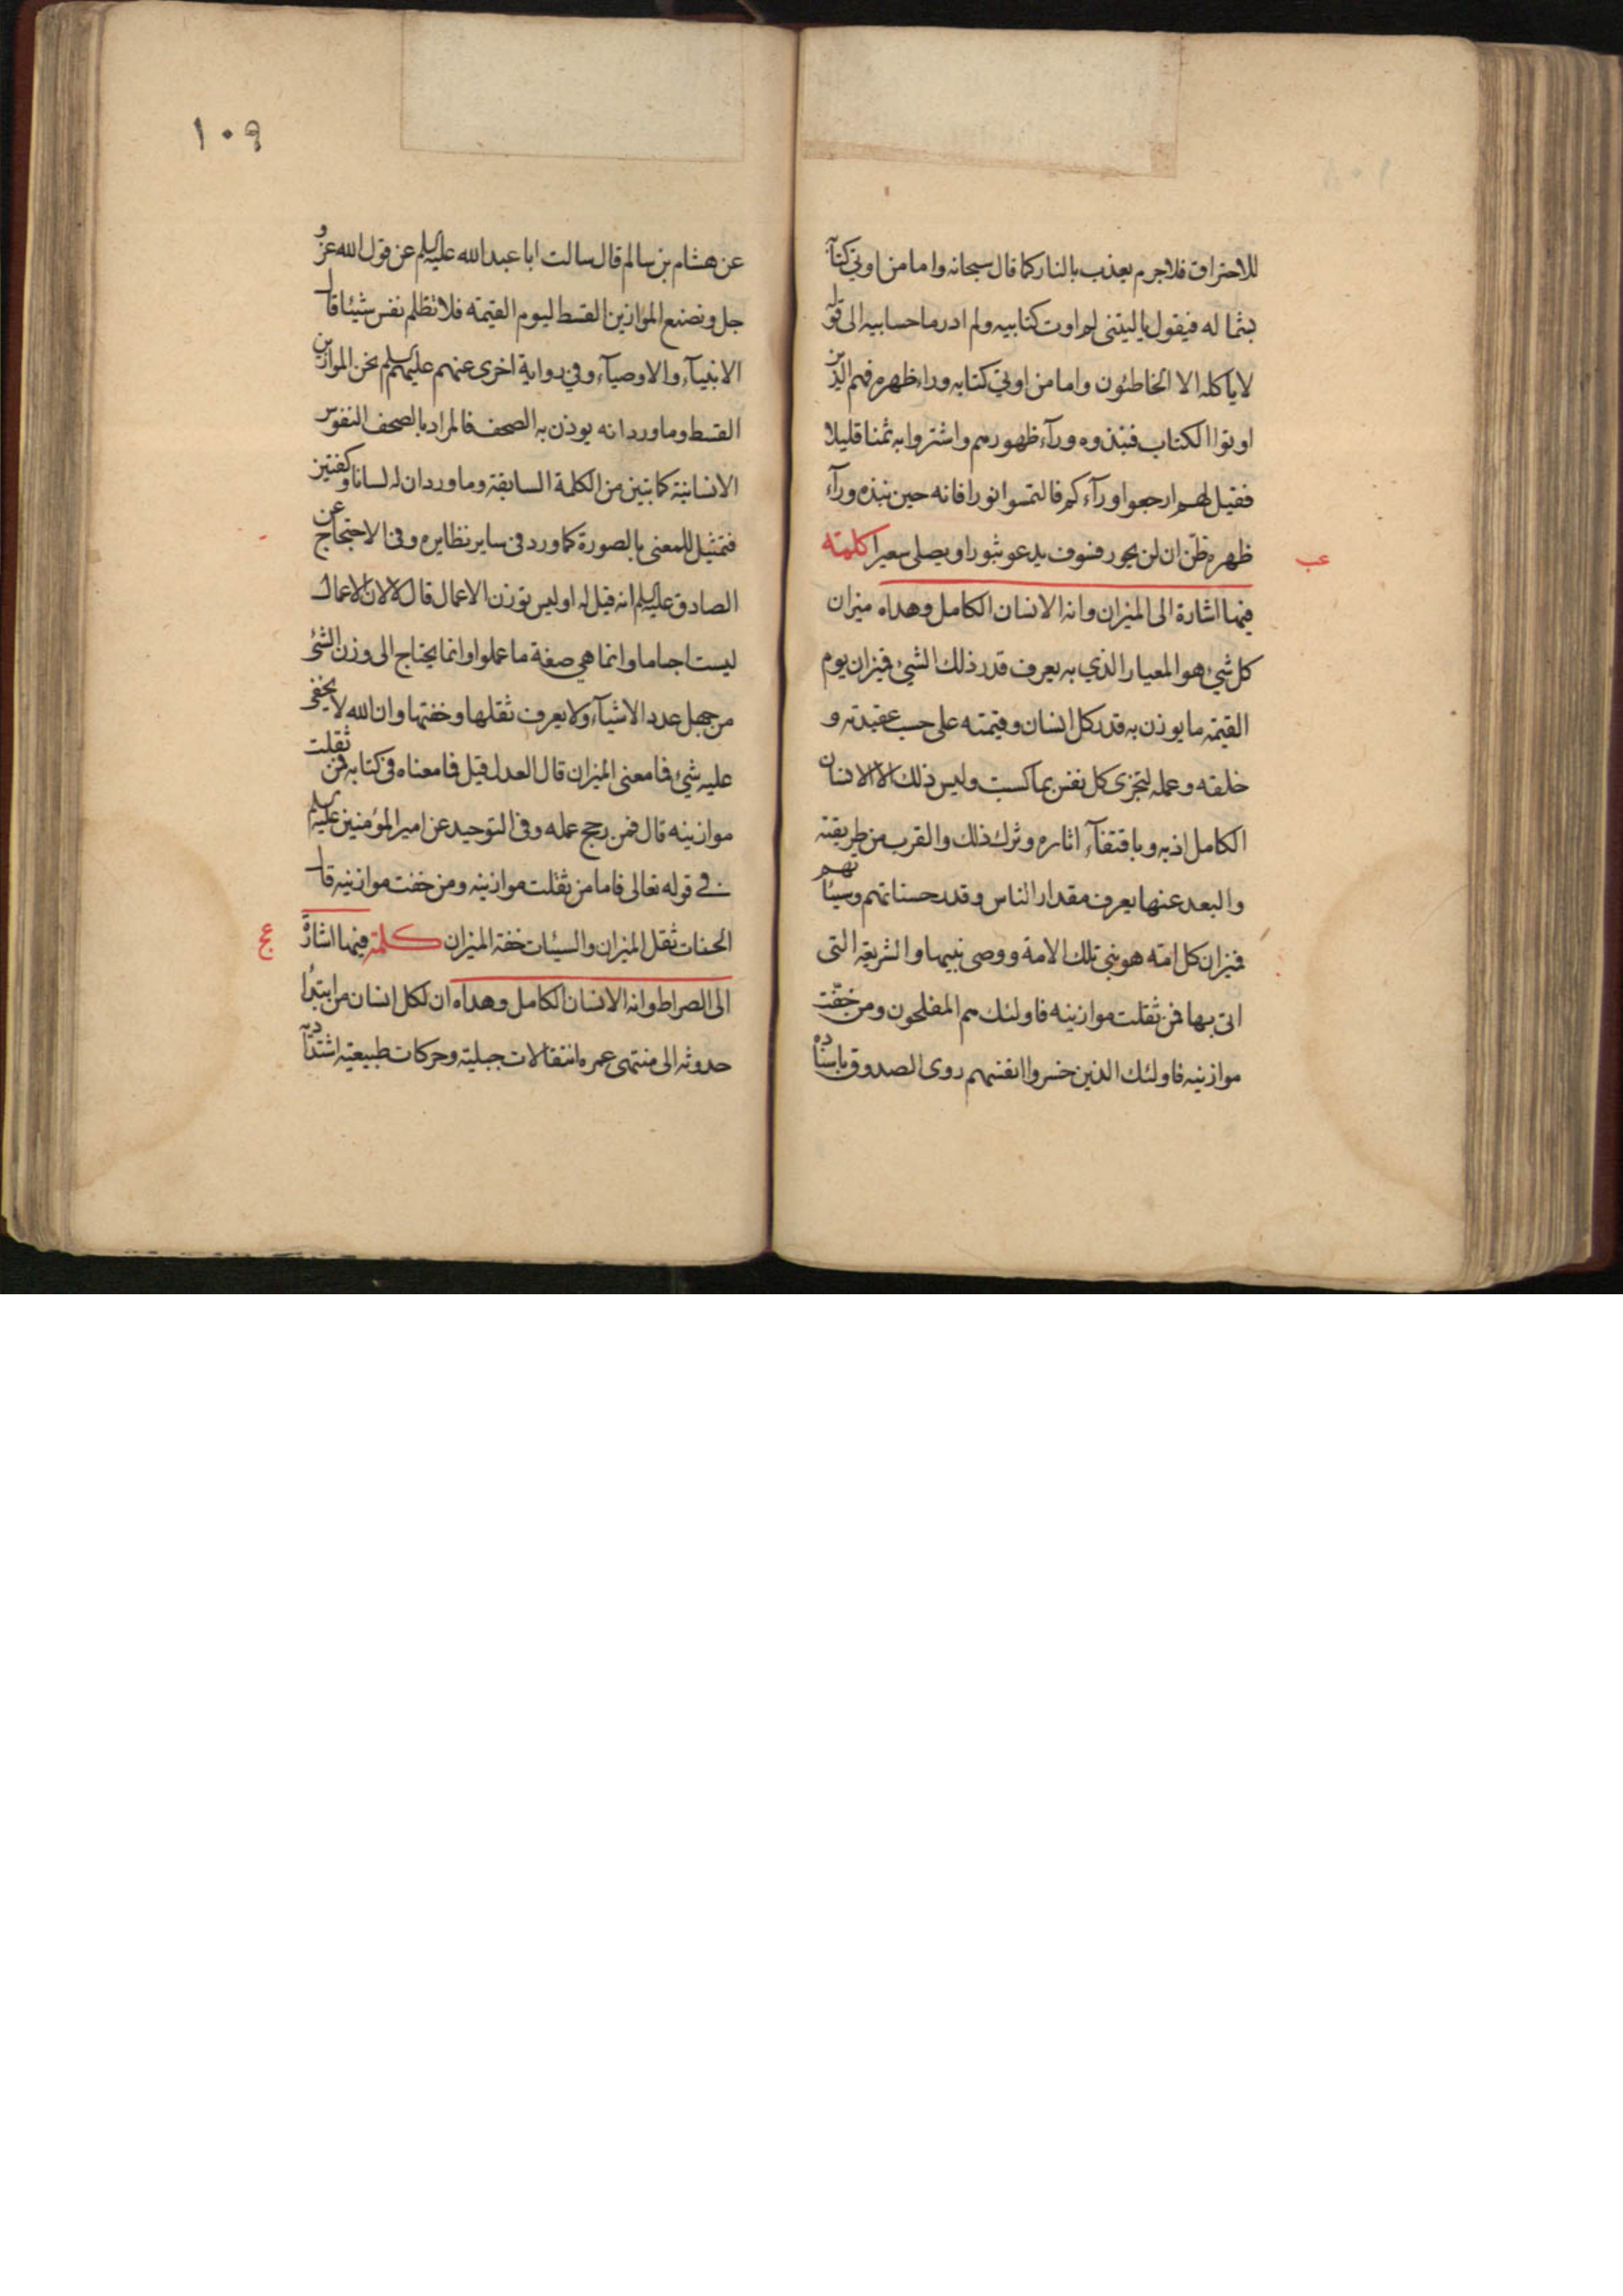 للاحتراق فلاجرم يعذب بالنار كما قال سبحانه واما من اوتي كتا
بشماله فيقول ياليتني لم اوت كتابيه ولم ادر ما حسابيه الى قوله
لا ياكله الا الخاطئون واما من اوتي كتابه وراء ظهره فهم الذين
اوتوا الكتاب فنبذوه ورآء ظهورهم واشتروا به ثمنا قليلا
فقيل لهم ارجعوا ورآءكم فالتمسوا نورا فانه حين نبذه ورآء
ظهره ظن ان لن يحور فسوف يدعو ثبورا ويصلى سعيرا كلمة
عب
فيها اشارة الى الميزان وانه الانسان الكامل وهداه ميزان
كل شيء هو المعيار الذي به يعرف قدر ذلك الشيء فميزان يوم
القيمة ما يوزن به قدر كل انسان وقيمته على حسب عقيدته و
خلقه وعمله لتجزى كل نفس بما كسبت وليس ذلك الا الانسان
الكامل اذ به وباقتفآء اثاره وترك ذلك والقرب من طريقته
والبعد عنها يعرف مقدار الناس وقدر حسناتهم وسيئاتهم
فميزان كل امة هو نبي تلك الامة ووصي نبيها والشريعة التي
اتى بها فمن ثقلت موازينه فاولئك هم المفلحون ومن خفت
موازينه فاولئك الذين خسروا انفسهم روى الصدوق باسناده
١٠٩
عن هشام بن سالم قال سالت ابا عبد الله عليه السلم عن قول الله عز و
جل ونضع الموازين القسط ليوم القيمة فلا تظلم نفس شيئا قال
الانبيآء والاوصيآء وفي رواية اخرى عنهم عليهم السلم نحن الموازين
القسط وما ورد انه يوزن به الصحف فالمراد بالصحف النفوس
الانسانية كما تبين من الكلمة السابقة وما ورد ان له لسانا وكفتين
فتمثيل للمعنى بالصورة كما ورد في ساير نظايره وفي الاحتجاج عن
الصادق عليه السلم انه قيل له اوليس توزن الاعمال قال لا لان الاعمال
ليست اجساما وانما هي صفة ما عملوا وانما يحتاج الى وزن الشئ
من جهل عدد الاشيآء ولا يعرف ثقلها وخفتها وان الله لا يخفى
عليه شيء فما معنى الميزان قال العدل قيل فما معناه في كتابه فمن ثقلت
موازينه قال فمن رجح عمله وفي التوحيد عن امير المؤمنين عليه السلم
في قوله تعالى فاما من ثقلت موازينه ومن خفت موازينه قال
الحسنات ثقل الميزان والسيئات خفة الميزان كلمة فيها اشارة
عج
الى الصراط وانه الانسان الكامل وهداه ان لكل انسان من ابتدا
حدوثه الى منتهى عمره انتقالات جبلية وحركات طبيعية اشتدا